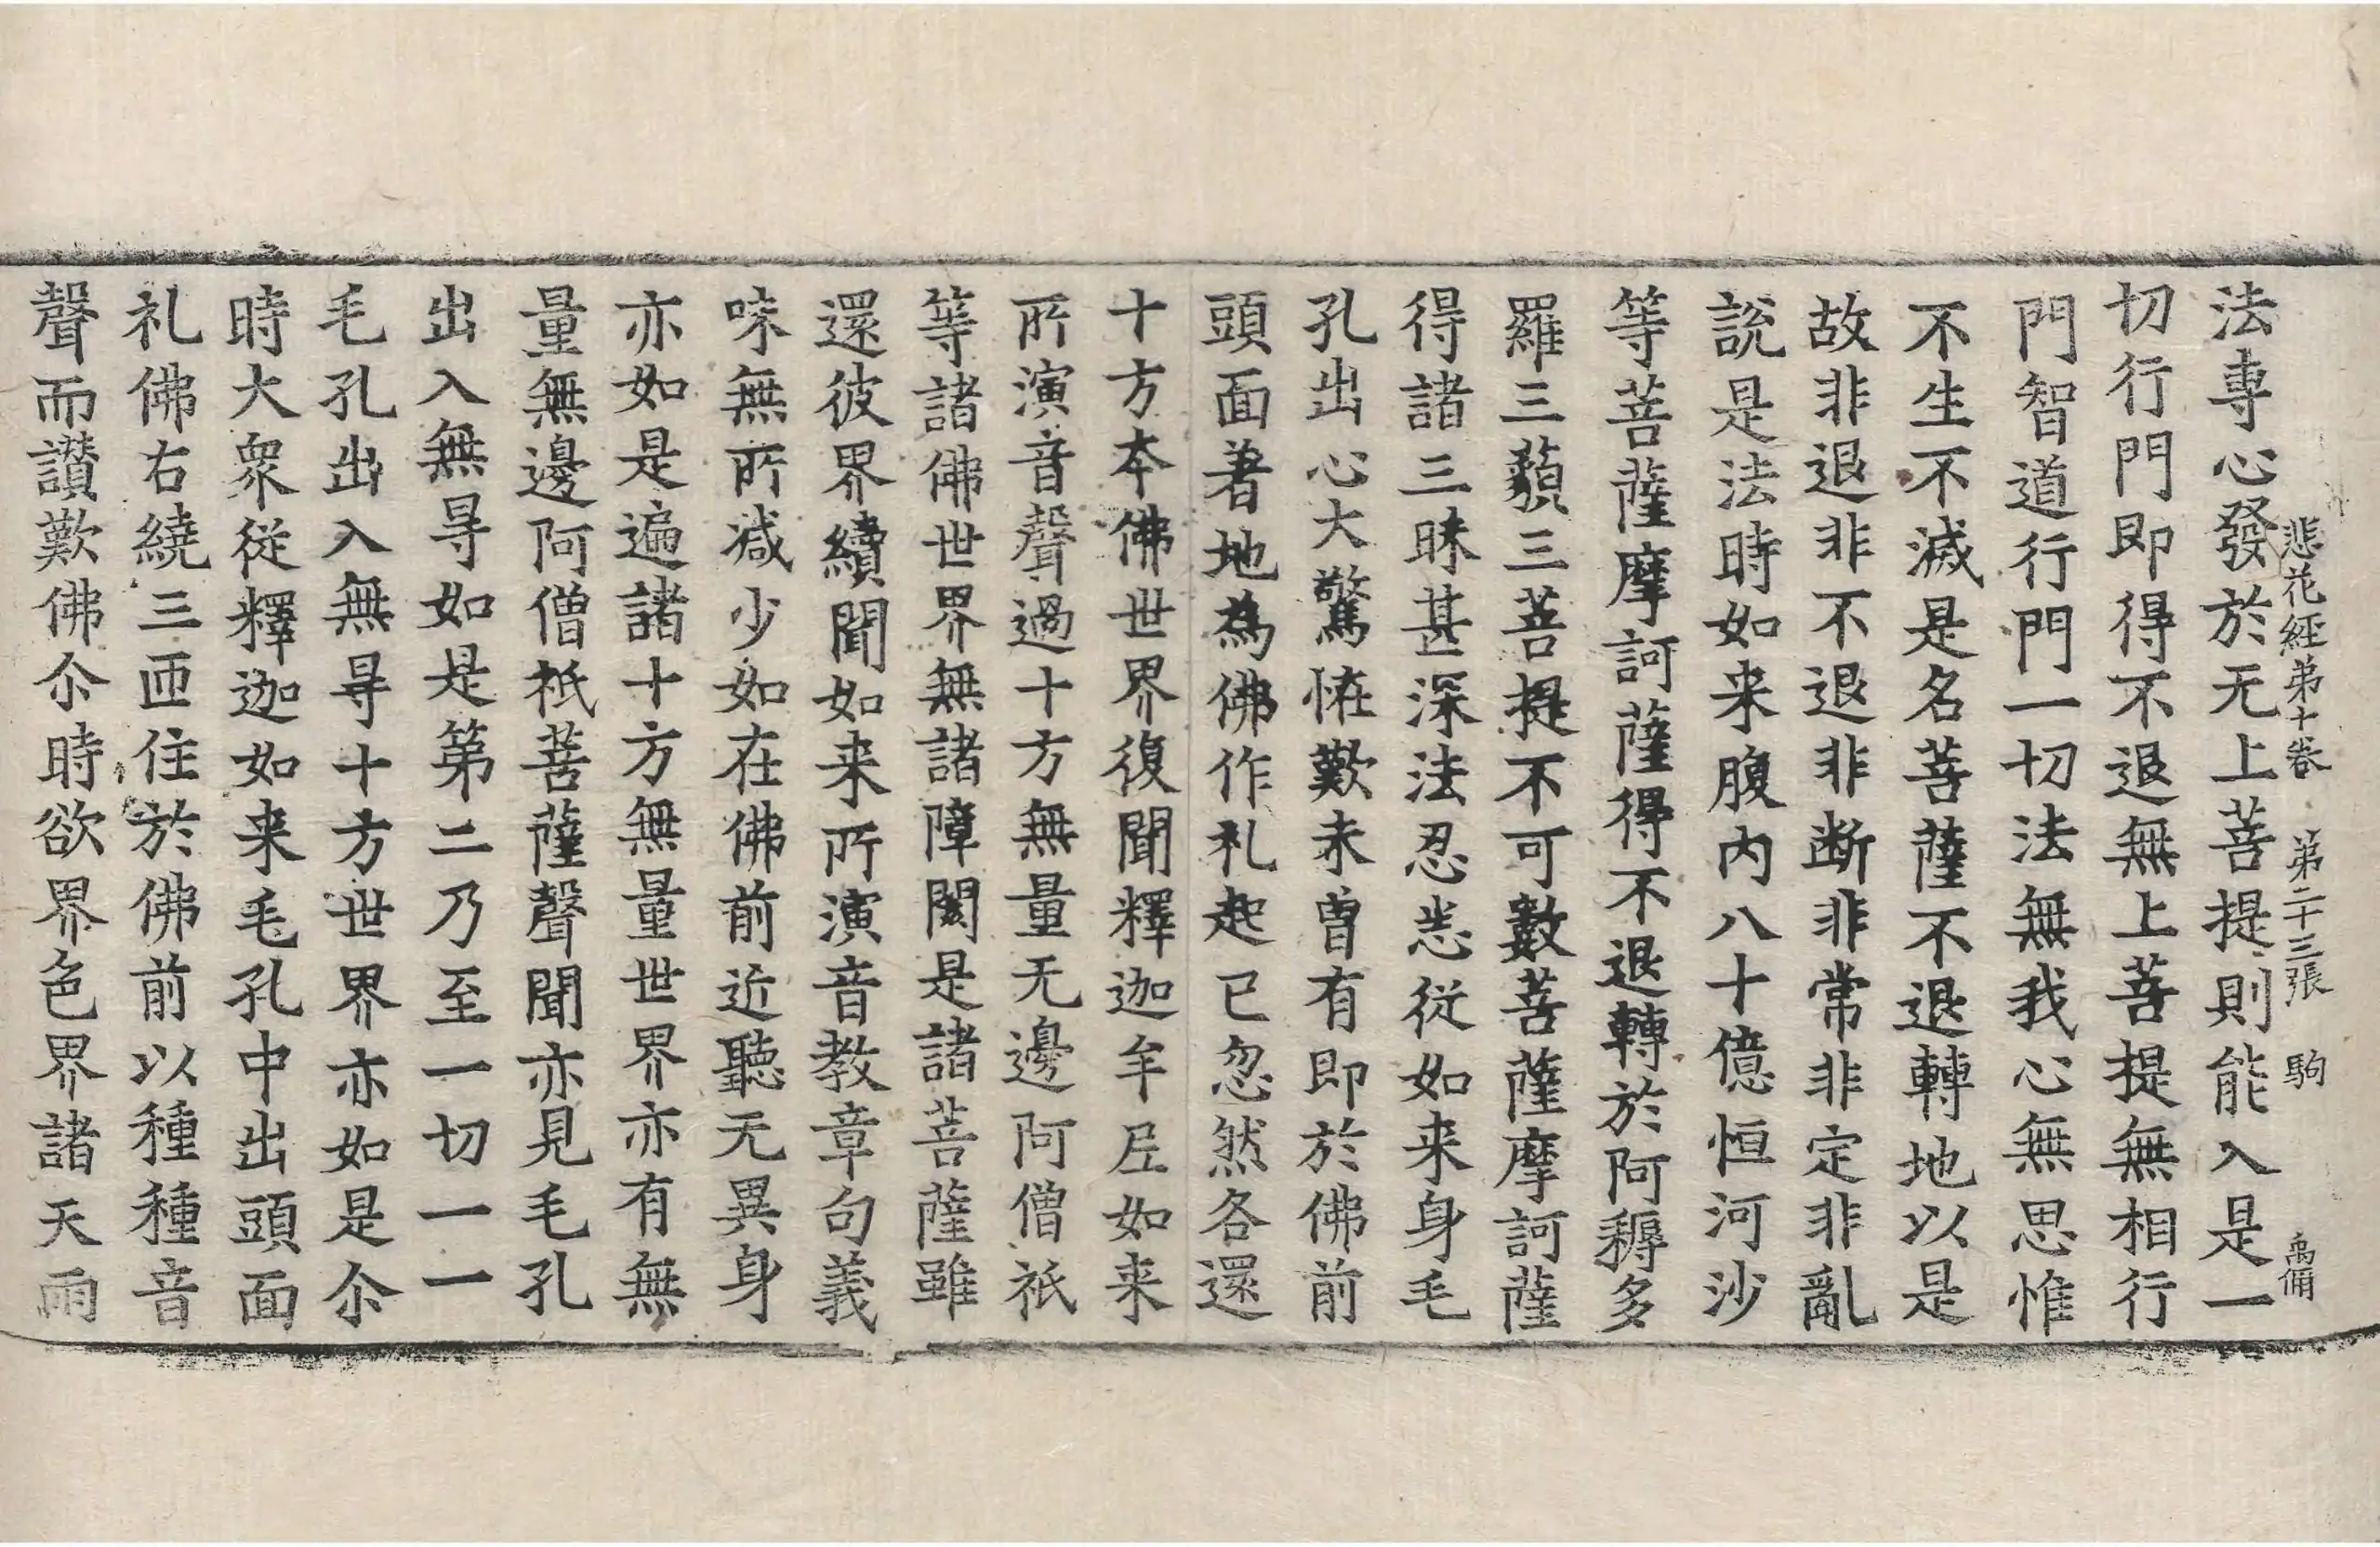 悲花經第十卷 第二十三張 駒 禹俻
法專心發於无上菩提則能入是一
切行門即得不退無上菩提無相行
門智道行門一切法無我心無思惟
不生不滅是名菩薩不退轉地以是
故非退非不退非断非常非定非亂
說是法時如来腹内八十億恒河沙
等菩薩摩訶薩得不退轉於阿耨多
羅三藐三菩提不可數菩薩摩訶薩
得諸三昧甚深法忍悉從如来身毛
孔出心大驚恠歎未曾有即於佛前
頭面著地為佛作礼起已忽然各還
十方本佛世界復聞釋迦牟尼如来
所演音聲過十方無量无邊阿僧祇
等諸佛世界無諸障閡是諸菩薩雖
還彼界續聞如来所演音教章句義
味無所减少如在佛前近聽无異身
亦如是遍諸十方無量世界亦有無
量無邊阿僧祇菩薩聲聞亦見毛孔
出入無㝵如是第二乃至一切一一
毛孔出入無㝵十方世界亦如是尒
時大衆從釋迦如来毛孔中出頭面
礼佛右繞三匝住於佛前以種種音
聲而讃歎佛尒時欲界色界諸天雨